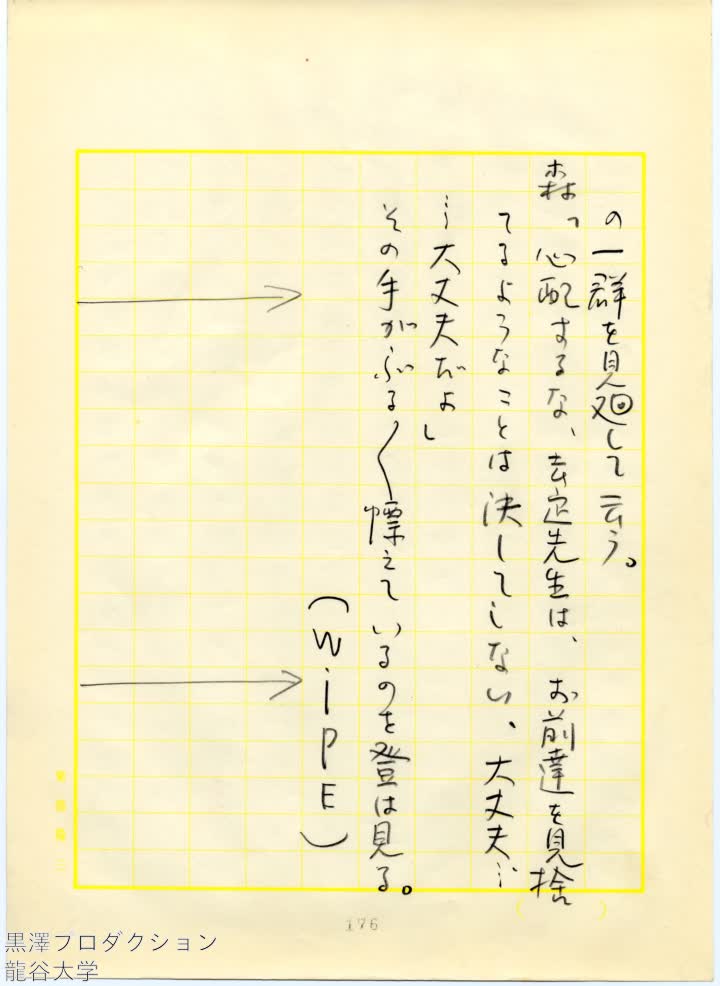 の一群を見廻して云う。
森「心配するな、去定先生は、お前達を見捨
てるようなことは決してしない、大丈夫…
…大丈夫だよ」
その手がぶる〱慄えているのを登は見る。
（WiPE）
176
黒澤プロダクション
龍谷大学